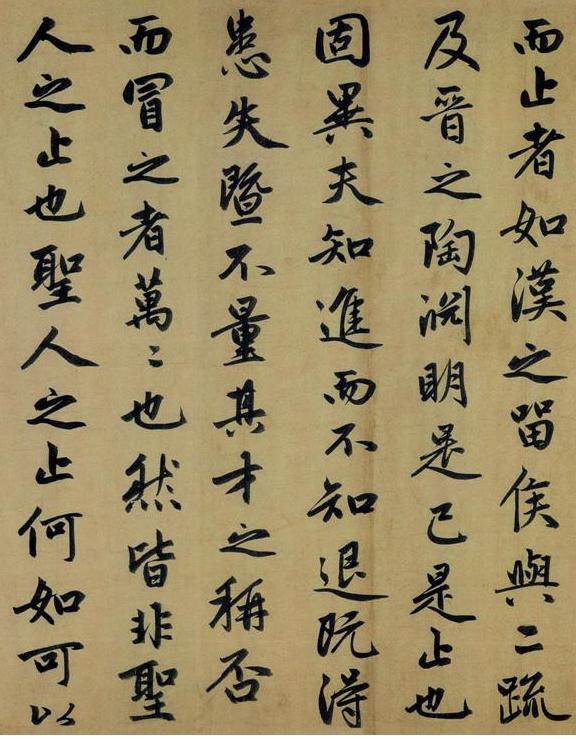 而止者如漢之留侯與二疏
及晉之陶淵明是已是止也
固異夫知進而不知退既得
患失暨不量其才之稱否
而冒之者萬〻也然皆非聖
人之止也聖人之止何如可以